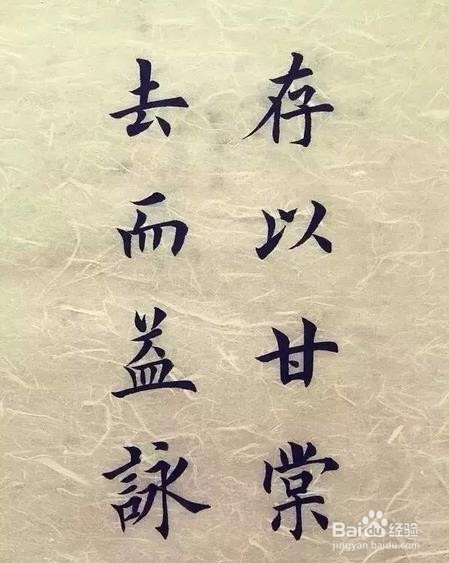 存以甘棠
去而益詠
Baidu经验
jingyan.baidu.com